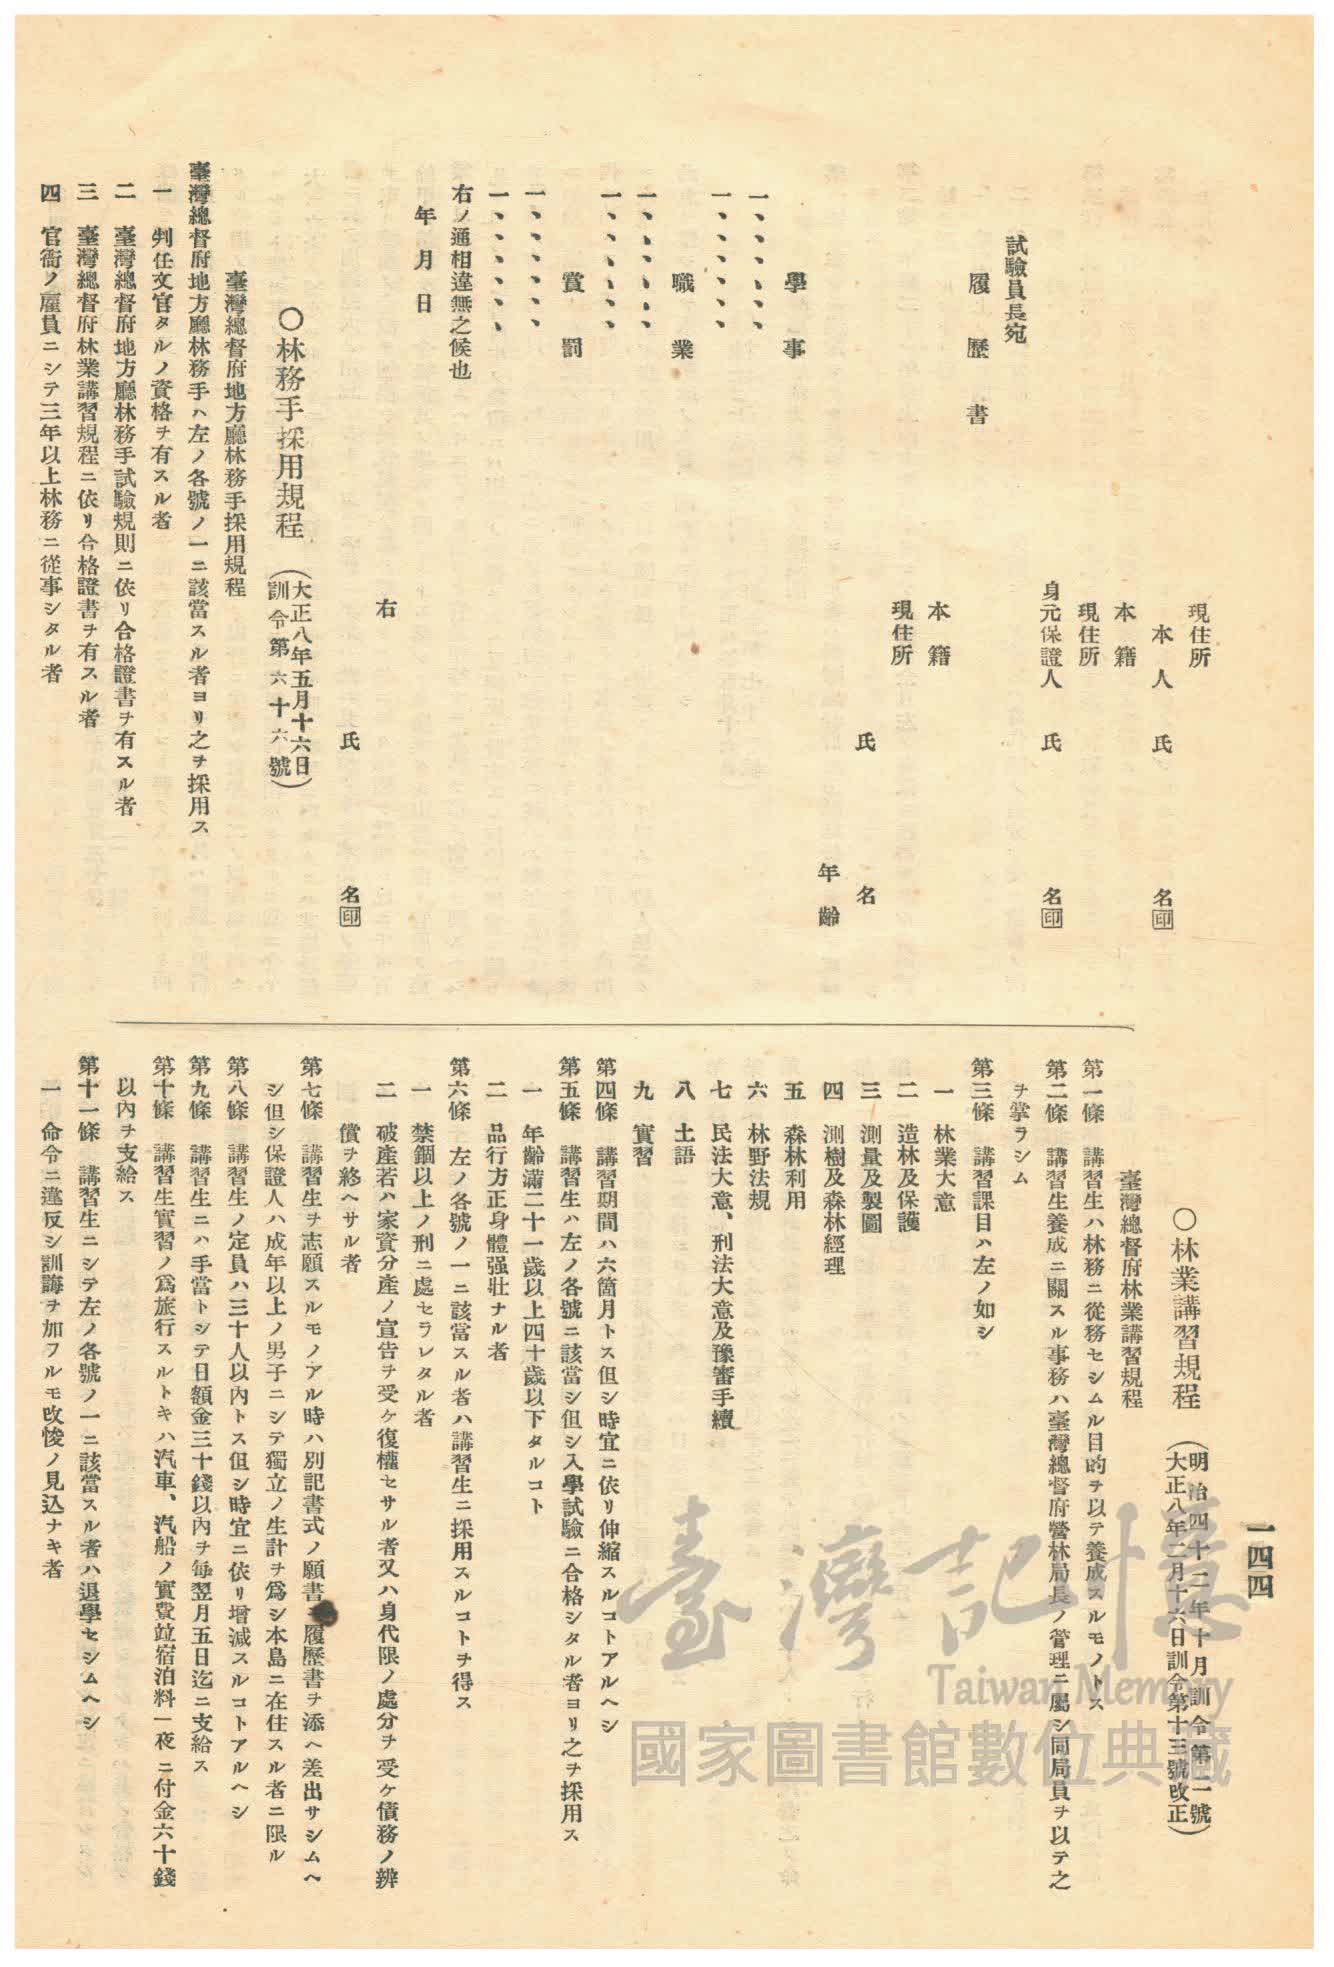 一四四
現住所
本人 氏 名㊞
本籍
現住所
身元保證人 氏 名㊞
試驗員長宛
履歷書
本籍
現住所
氏 名
年齡
學事
一、、、、、、
一、、、、、、
職業
一、、、、、、
一、、、、、、
賞罰
一、、、、、、
一、、、、、、
右ノ通相違無之候也
年月日
右
氏 名㊞
〇林務手採用規程 (大正八年五月十六日
訓令第六十六號)
臺灣總督府地方廳林務手採用規程
臺灣總督府地方廳林務手ハ左ノ各號ノ一ニ該當スル者ヨリ之ヲ採用ス
一 判任文官タルノ資格ヲ有スル者
二 臺灣總督府地方廳林務手試驗規則ニ依リ合格證書ヲ有スル者
三 臺灣總督府林業講習規程ニ依リ合格證書ヲ有スル者
四 官衙ノ雇員ニシテ三年以上林務ニ從事シタル者
〇林業講習規程 (明治四十二年十月訓令第二號
大正八年二月十六日訓令第十三號改正)
臺灣總督府林業講習規程
第一條 講習生ハ林務ニ從務セシムル目的ヲ以テ養成スルモノトス
第二條 講習生養成ニ關スル事務ハ臺灣總督府營林局長ノ管理ニ屬シ同局員ヲ以テ之
ヲ掌ラシム
第三條 講習課目ハ左ノ如シ
一 林業大意
二 造林及保護
三 測量及製圖
四 測樹及森林經理
五 森林利用
六 林野法規
七 民法大意、刑法大意及豫審手續
八 土語
九 實習
第四條 講習期間ハ六箇月トス但シ時宜ニ依リ伸縮スルコトアルヘシ
第五條 講習生ハ左ノ各號ニ該當シ但シ入學試驗ニ合格シタル者ヨリ之ヲ採用ス
一 年齡滿二十一歲以上四十歲以下タルコト
二 品行方正身體强壯ナル者
第六條 左ノ各號ノ一ニ該當スル者ハ講習生ニ採用スルコトヲ得ス
一 禁錮以上ノ刑ニ處セラレタル者
二 破產若ハ家資分產ノ宣告ヲ受ケ復權セサル者又ハ身代限ノ處分ヲ受ケ債務ノ辨
償ヲ終ヘサル者
第七條 講習生ヲ志願スルモノアル時ハ別記書式ノ願書ニ履歷書ヲ添ヘ差出サシムヘ
シ但シ保證人ハ成年以上ノ男子ニシテ獨立ノ生計ヲ爲シ本島ニ在住スル者ニ限ル
第八條 講習生ノ定員ハ三十人以內トス但シ時宜ニ依リ增減スルコトアルヘシ
第九條 講習生ニハ手當トシテ日額金三十錢以內ヲ每翌月五日迄ニ支給ス
第十條 講習生實習ノ爲旅行スルトキハ汽車、汽船ノ實費竝宿泊料一夜ニ付金六十錢
以內ヲ支給ス
第十一條 講習生ニシテ左ノ各號ノ一ニ該當スル者ハ退學セシムヘシ
一 命令ニ違反シ訓誨ヲ加フルモ改悛ノ見込ナキ者
臺灣記憶
Taiwan Memory
國家圖書館數位典藏